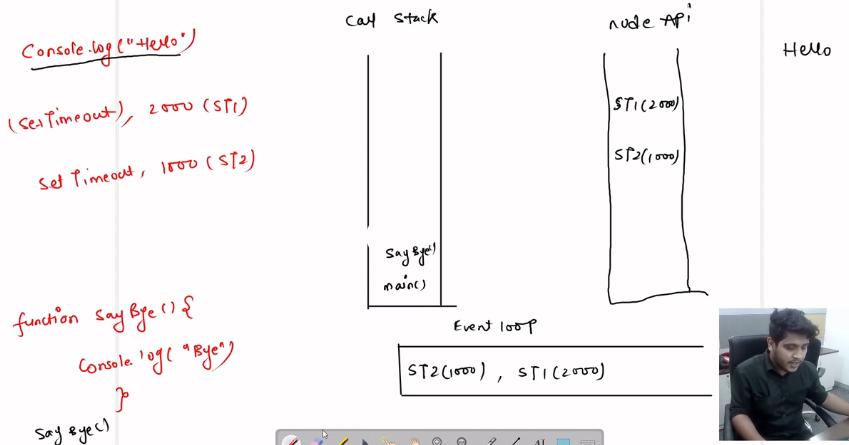 Console.log("Hello")
(SetTimeout), 2000 (ST1)
Set Timeout, 1000 (ST2)
function sayBye() {
Console.log("Bye")
}
SayBye()
Call Stack
SayBye()
main()
node API
ST1(2000)
ST2(1000)
Event loop
ST2(1000), ST1(2000)
Hello